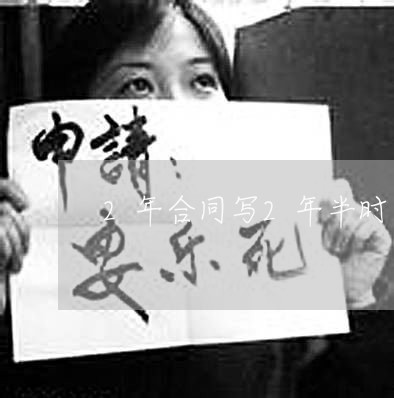 申請：
2 年合同写2 年半时
安乐死